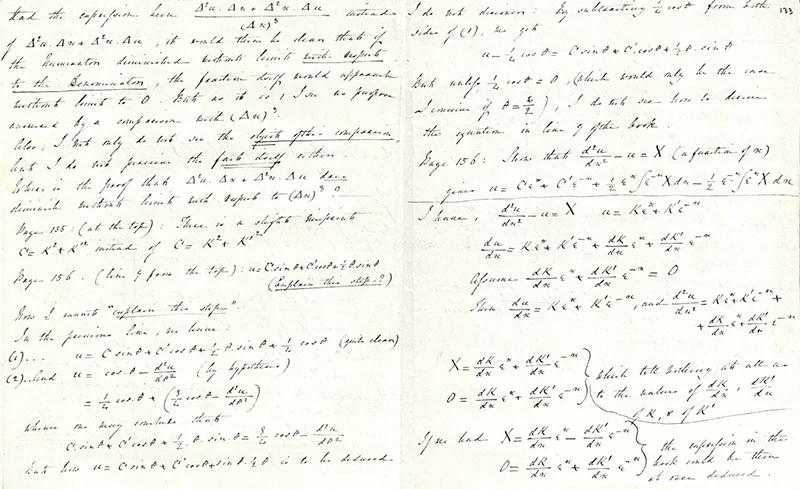 Had the expression been (Δ²u . Δx + Δ²x . Δu)/(Δx)³ instead
of Δ²u . Δx + Δ²x . Δu, it would then be clear that if
the Numerator diminished without limit with respect
to the Denominator, the fraction itself would approach
without limit to 0. But as it is, I see no purpose
answered by a comparison with (Δx)³.
Also, I not only do not see the object of the comparison,
but I do not perceive the fact itself either.
Where is the proof that Δ²u . Δx + Δ²x . Δu does
diminish without limit with respect to (Δx)³ ?
Page 135 : (at the top) : There is a slight misprint
C = K² + K'² instead of C = K² + K'²
Page 156 : (line 9 from the top) : u = C sin θ + C' cos θ + ½ θ . sin θ
(Explain this step?)
Now I cannot "explain this step".
In the previous line, we have :
(1)... u = C sin θ + C' cos θ + ½ θ . sin θ + ¼ cos θ (quite clear)
(2)..And u = cos θ - d²u/dθ² (by hypothesis)
= ¼ cos θ + (¾ cos θ - d²u/dθ²)
whence one may conclude that
C . sin θ + C' cos θ + ½ . θ . sin θ = ¾ cos θ - d²u/dθ²
But how u = C sin θ + C' cos θ + sin θ . ½ θ is to be deduced
133
I do not discover : By subtracting ¼ cos θ from both
sides of (1), we get
u - ¼ cos θ = C sin θ + C' . cos θ + ½ θ . sin θ
But unless ¼ cos θ = 0, (which would only be the case
I conceive if θ = π/2), I do not see how to derive
the equation in line 9 of the book
Page 156 : Show that d²u/dx² - u = X (a function of x)
gives u = Cε^x + C'ε^-x + ½ ε^x ∫ε^-x X dx - ½ ε^-x ∫ε^x X dx
I have, d²u/dx² - u = X u = Kε^x + K'ε^-x
du/dx = Kε^x + K'ε^-x + dK/dx ε^x + dK'/dx ε^-x
Assume dK/dx ε^x + dK'/dx ε^-x = 0
Then du/dx = Kε^x + K'ε^-x, and d²u/dx² = Kε^x + K'ε^-x +
+ dK/dx ε^x + dK'/dx ε^-x
X = dK/dx ε^x + dK'/dx ε^-x
0 = dK/dx ε^x + dK'/dx ε^-x
which tell nothing at all as
to the values of dK/dx, dK'/dx
of K, & of K'
If we had X = dK/dx ε^x - dK'/dx ε^-x
0 = dK/dx ε^x + dK'/dx ε^-x
the expression in the
book could be then
at once deduced.